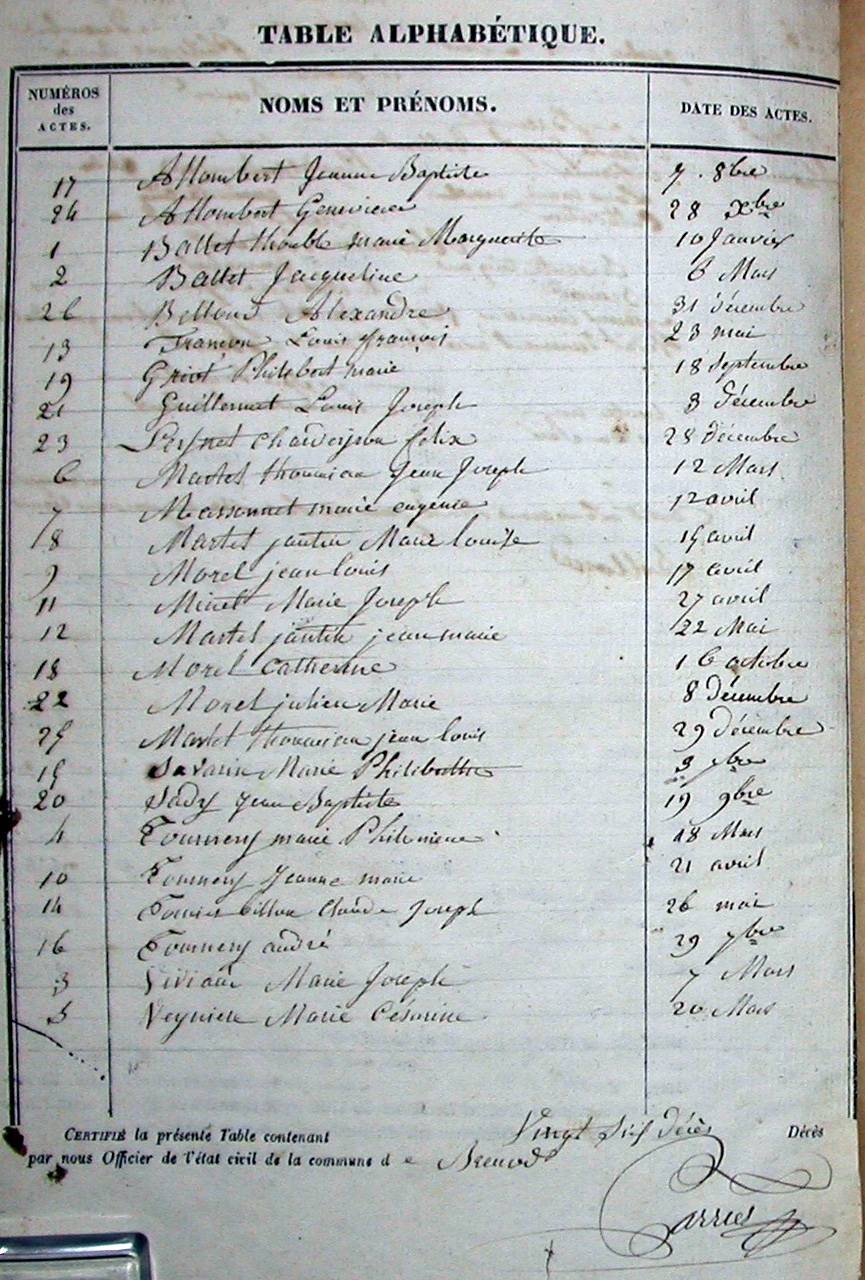 TABLE ALPHABÉTIQUE.
NUMÉROS des ACTES. NOMS ET PRÉNOMS. DATE DES ACTES.
17 Allombert Jeanne Baptiste 7. 8bre
24 Allombert Genevieve 28 Xbre
1 Ballet thouble marie Marguerite 10 Janvier
2 Ballet Jacqueline 6 Mars
26 Alexandre 31 décembre
13 Francon Louis françois 23 mai
19 Griot Philibert marie 18 Septembre
21 Guillermet Louis Joseph 3 décembre
23 felix 28 décembre
6 Martel thomasson Jean Joseph 12 Mars
7 Massonnet marie eugenie 12 avril
8 Martel jantin Marie louise 15 avril
9 Morel jean louis 17 avril
11 Minet Marie Joseph 27 avril
12 Martel jantin jean marie 22 Mai
18 Morel Catherine 16 octobre
22 Morel julien Marie 8 décembre
25 Martel thomasson jean louis 29 Décembre
15 Savarin Marie Philiberthe 3 7bre
20 Sady Jean Baptiste 19 9bre
4 Tournery marie Philomene 18 Mars
10 Tournery Jeanne marie 21 avril
14 billon Claude Joseph 26 mai
16 Tournery andré 29 7bre
3 Marie Joseph 7 Mars
5 Marie Césarine 20 Mars
CERTIFIÉ la présente Table contenant Vingt Six décès Décès
par nous Officier de l'état civil de la commune de Brenod
Carrier